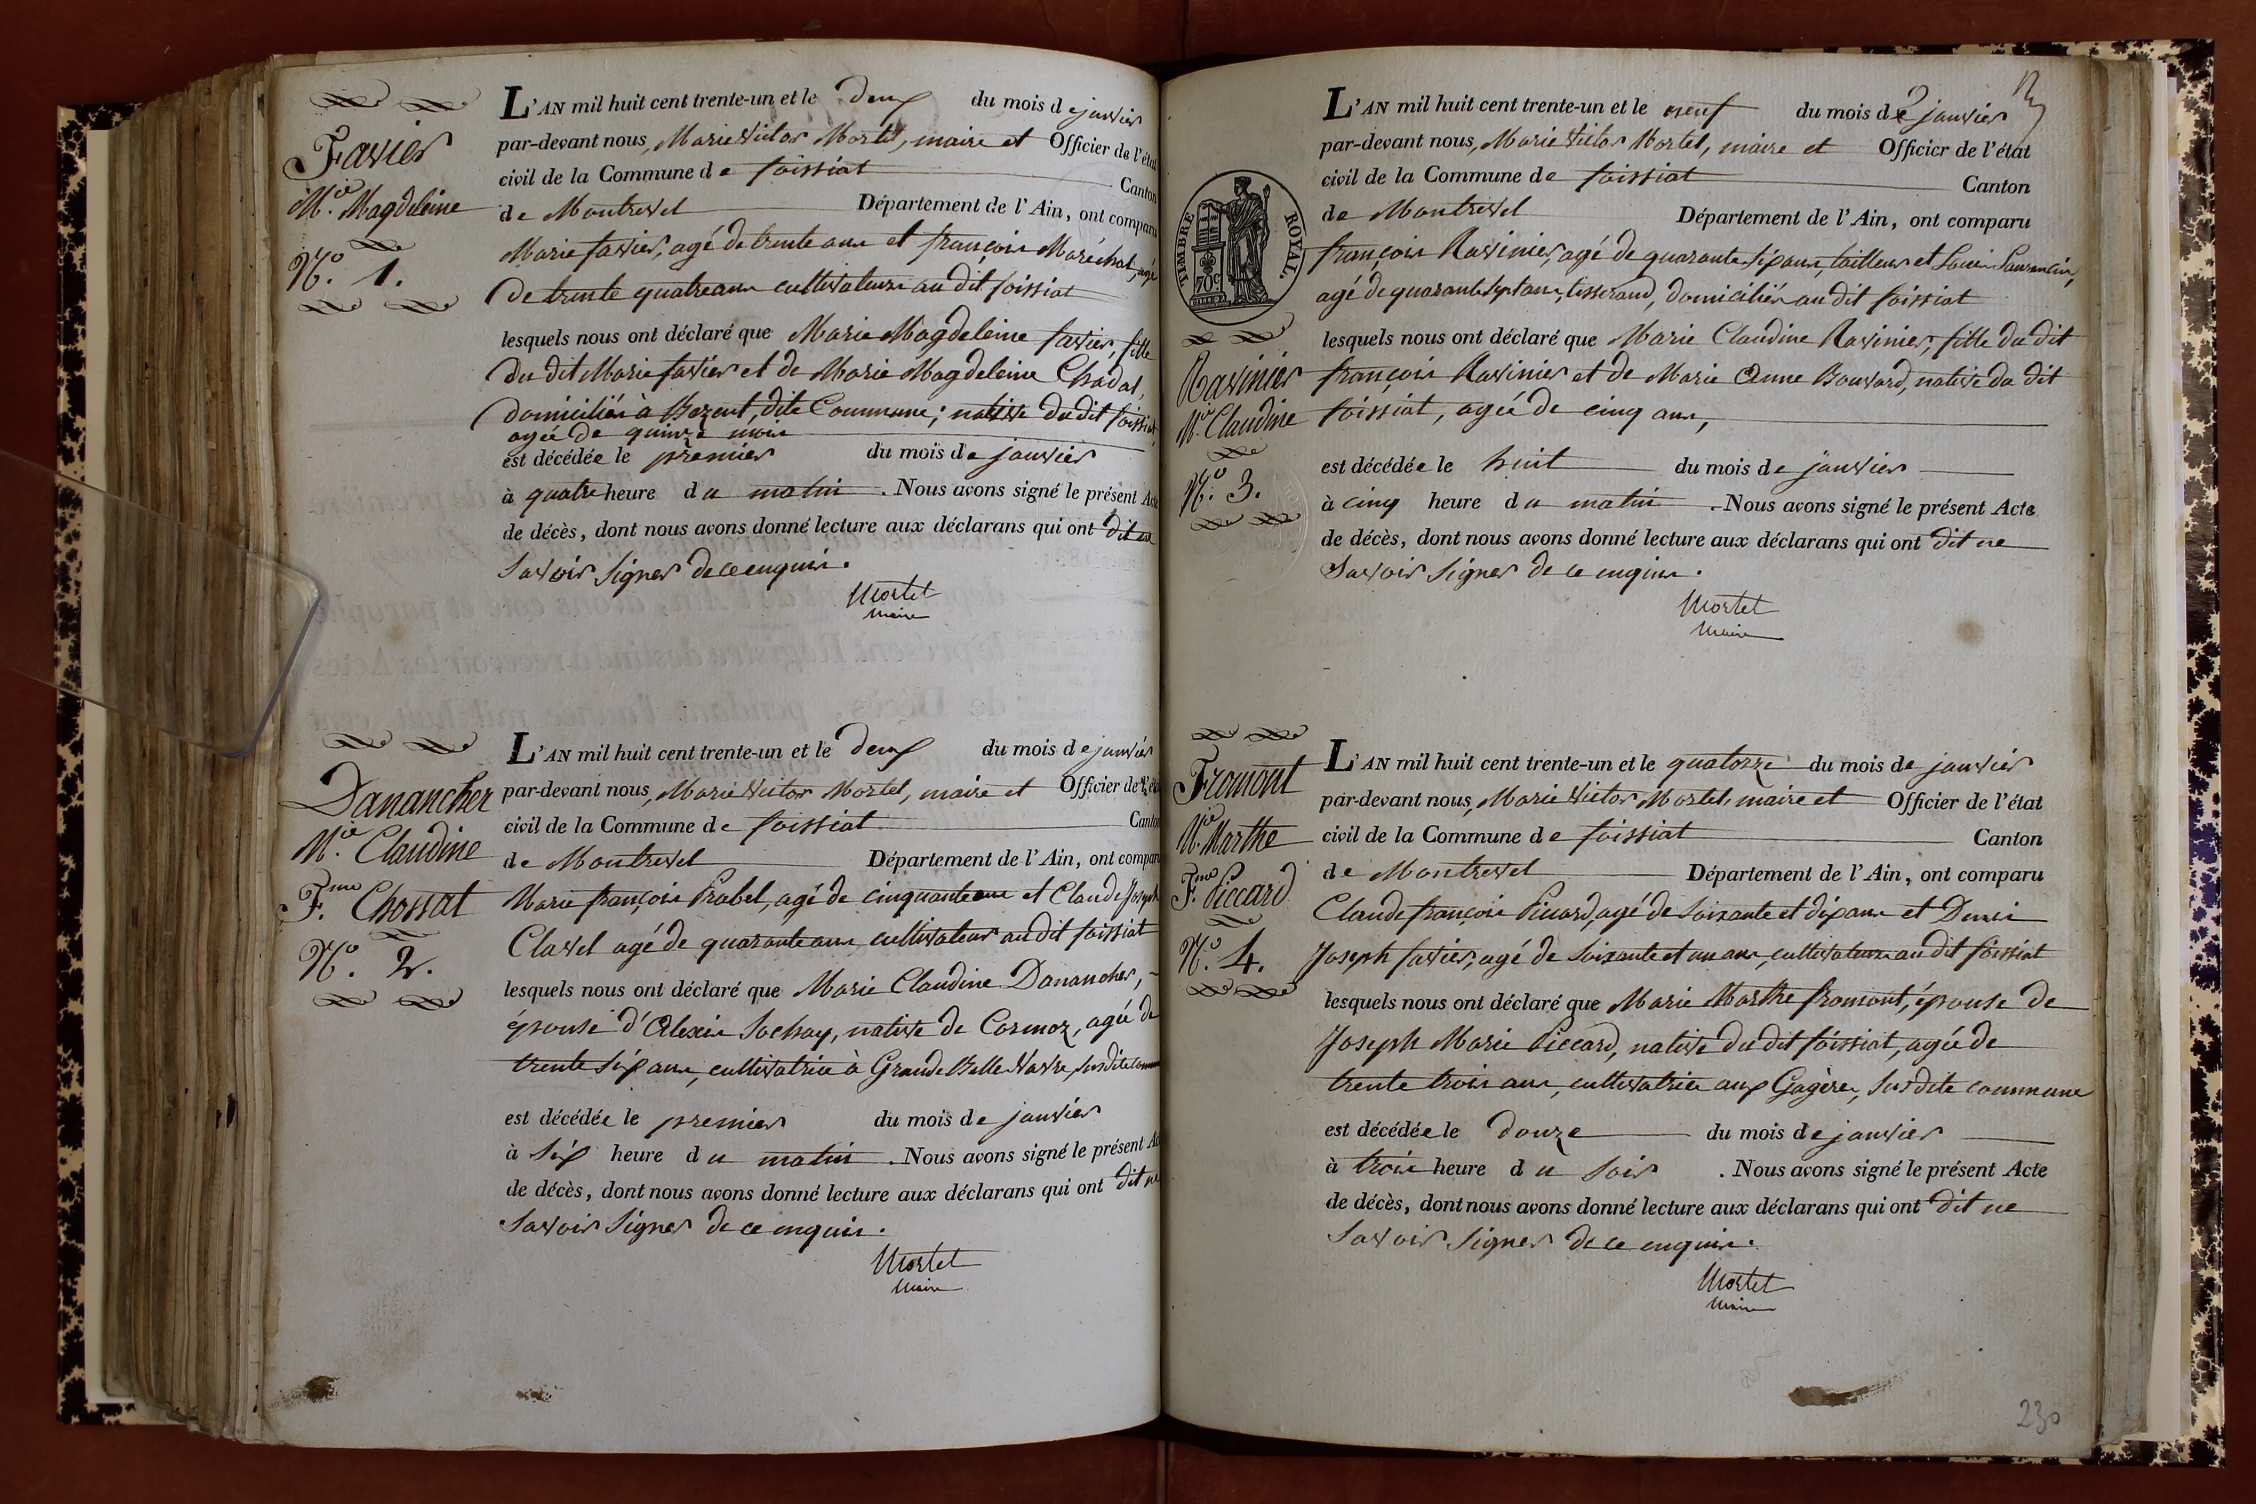 Favier
M.ie Magdeleine
N.o 1.
L'AN mil huit cent trente-un et le deux du mois de janvier
par-devant nous, Marie Victor Mortel, maire et Officier de l'état
civil de la Commune de foissiat Canton
de Montrevel Département de l'Ain, ont comparu
Marie favier, agé de trente ans et françois Maréchal, agé
de trente quatre ans cultivateurs au dit foissiat
lesquels nous ont déclaré que Marie Magdeleine favier, fille
du dit Marie favier et de Marie Magdeleine Chadal,
domiciliés à Bezent, dite Commune; native du dit foissiat,
agée de quinze mois
est décédée le premier du mois de janvier
à quatre heure du matin. Nous avons signé le présent Acte
de décès, dont nous avons donné lecture aux déclarans qui ont dit ne
savoir signer de ce enquis.
Mortel
Maire
Danancher
M.ie Claudine
F.me Chossat
N.o 2.
L'AN mil huit cent trente-un et le deux du mois de janvier
par-devant nous, Marie Victor Mortel, maire et Officier de l'état
civil de la Commune de foissiat Canton
de Montrevel Département de l'Ain, ont comparu
Marie françois Prabel, agé de cinquante ans et Claude Joseph
Clavel agé de quarante ans, cultivateurs au dit foissiat
lesquels nous ont déclaré que Marie Claudine Danancher,
épouse d'Alexis Sochay, native de Cormoz, agée de
trente six ans, cultivatrice à Grande Belle Vavre, susdite commune
est décédée le premier du mois de janvier
à six heure du matin. Nous avons signé le présent Acte
de décès, dont nous avons donné lecture aux déclarans qui ont dit ne
savoir signer de ce enquis.
Mortel
Maire
2
TIMBRE ROYAL.
70c
Ravinier
M.ie Claudine
N.o 3.
L'AN mil huit cent trente-un et le neuf du mois de janvier
par-devant nous, Marie Victor Mortel, maire et Officier de l'état
civil de la Commune de foissiat Canton
de Montrevel Département de l'Ain, ont comparu
françois Ravinier, agé de quarante six ans, tailleur et Louis Laurencin,
agé de quarante sept ans, tisserand, domiciliés au dit foissiat
lesquels nous ont déclaré que Marie Claudine Ravinier, fille du dit
françois Ravinier et de Marie Anne Bouvard, native du dit
foissiat, agée de cinq ans,
est décédée le huit du mois de janvier
à cinq heure du matin. Nous avons signé le présent Acte
de décès, dont nous avons donné lecture aux déclarans qui ont dit ne
savoir signer de ce enquis.
Mortel
Maire
Fromont
M.ie Marthe
F.me Piccard
N.o 4.
L'AN mil huit cent trente-un et le quatorze du mois de janvier
par-devant nous, Marie Victor Mortel, maire et Officier de l'état
civil de la Commune de foissiat Canton
de Montrevel Département de l'Ain, ont comparu
Claude françois Piccard, agé de soixante et dix ans et Denis
Joseph favier, agé de soixante et un ans, cultivateurs au dit foissiat
lesquels nous ont déclaré que Marie Marthe fromont, épouse de
Joseph Marie Piccard, native du dit foissiat, agée de
trente trois ans, cultivatrice aux Gagères, susdite commune
est décédée le douze du mois de janvier
à trois heure du soir. Nous avons signé le présent Acte
de décès, dont nous avons donné lecture aux déclarans qui ont dit ne
savoir signer de ce enquis.
Mortel
Maire
230